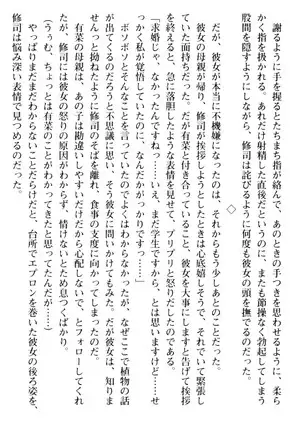 謝るように手を握るとたちまち指が絡んで、あのときの手つきを思わせる
かく指を扱かれる。あれだけ射精した直後だというのに、また節操なく勃起してしまう
股間を隠すようにしながら、修司は詫びるように何度も彼女の頭を撫でるのだった。
◇
だが、彼女が本当に不機嫌になったのは、それからもう少しあとのことだった。
彼女の母親が帰り、修司が挨拶したときは心底嬉しそうで、それでいて緊張し
た面持ちだった。だが有菜と付き合っていること、彼女を大事にしますと告げて挨拶
を終えると、急に落胆したような表情を見せて、プリプリと怒りだしたのである。
「求婚じゃ、なかったんですねっ……いえ、まだ学生ですから……とは思いますけど……せ
っかく私が覚悟していたのに、なんだかがっかりですっ……」
ボソボソとそんなことを言っていたのでよくはわからなかったが、なぜここで植物の話
が出てくるのだろうと不思議に思い、そう彼女に問いかけてもみた。だが彼女は、知りま
せんっと拗ねたように修司のそばを離れ、食事の支度に向かってしまったのだ。
有菜の母親は、あの子は勘違いしやすいだけだから心配しないで、とフォローしてくれ
たが、修司には彼女の怒りの原因がわからず、情けないとため息をつくばかり。
(うむ、ちょっとは有菜のことがわかってきたと思ってたんだが……)
やっぱりまだまだわからないことだらけだと、台所でエプロンを巻いた彼女の後ろ姿を、
修司は悩み深い表情で見つめるのだった。